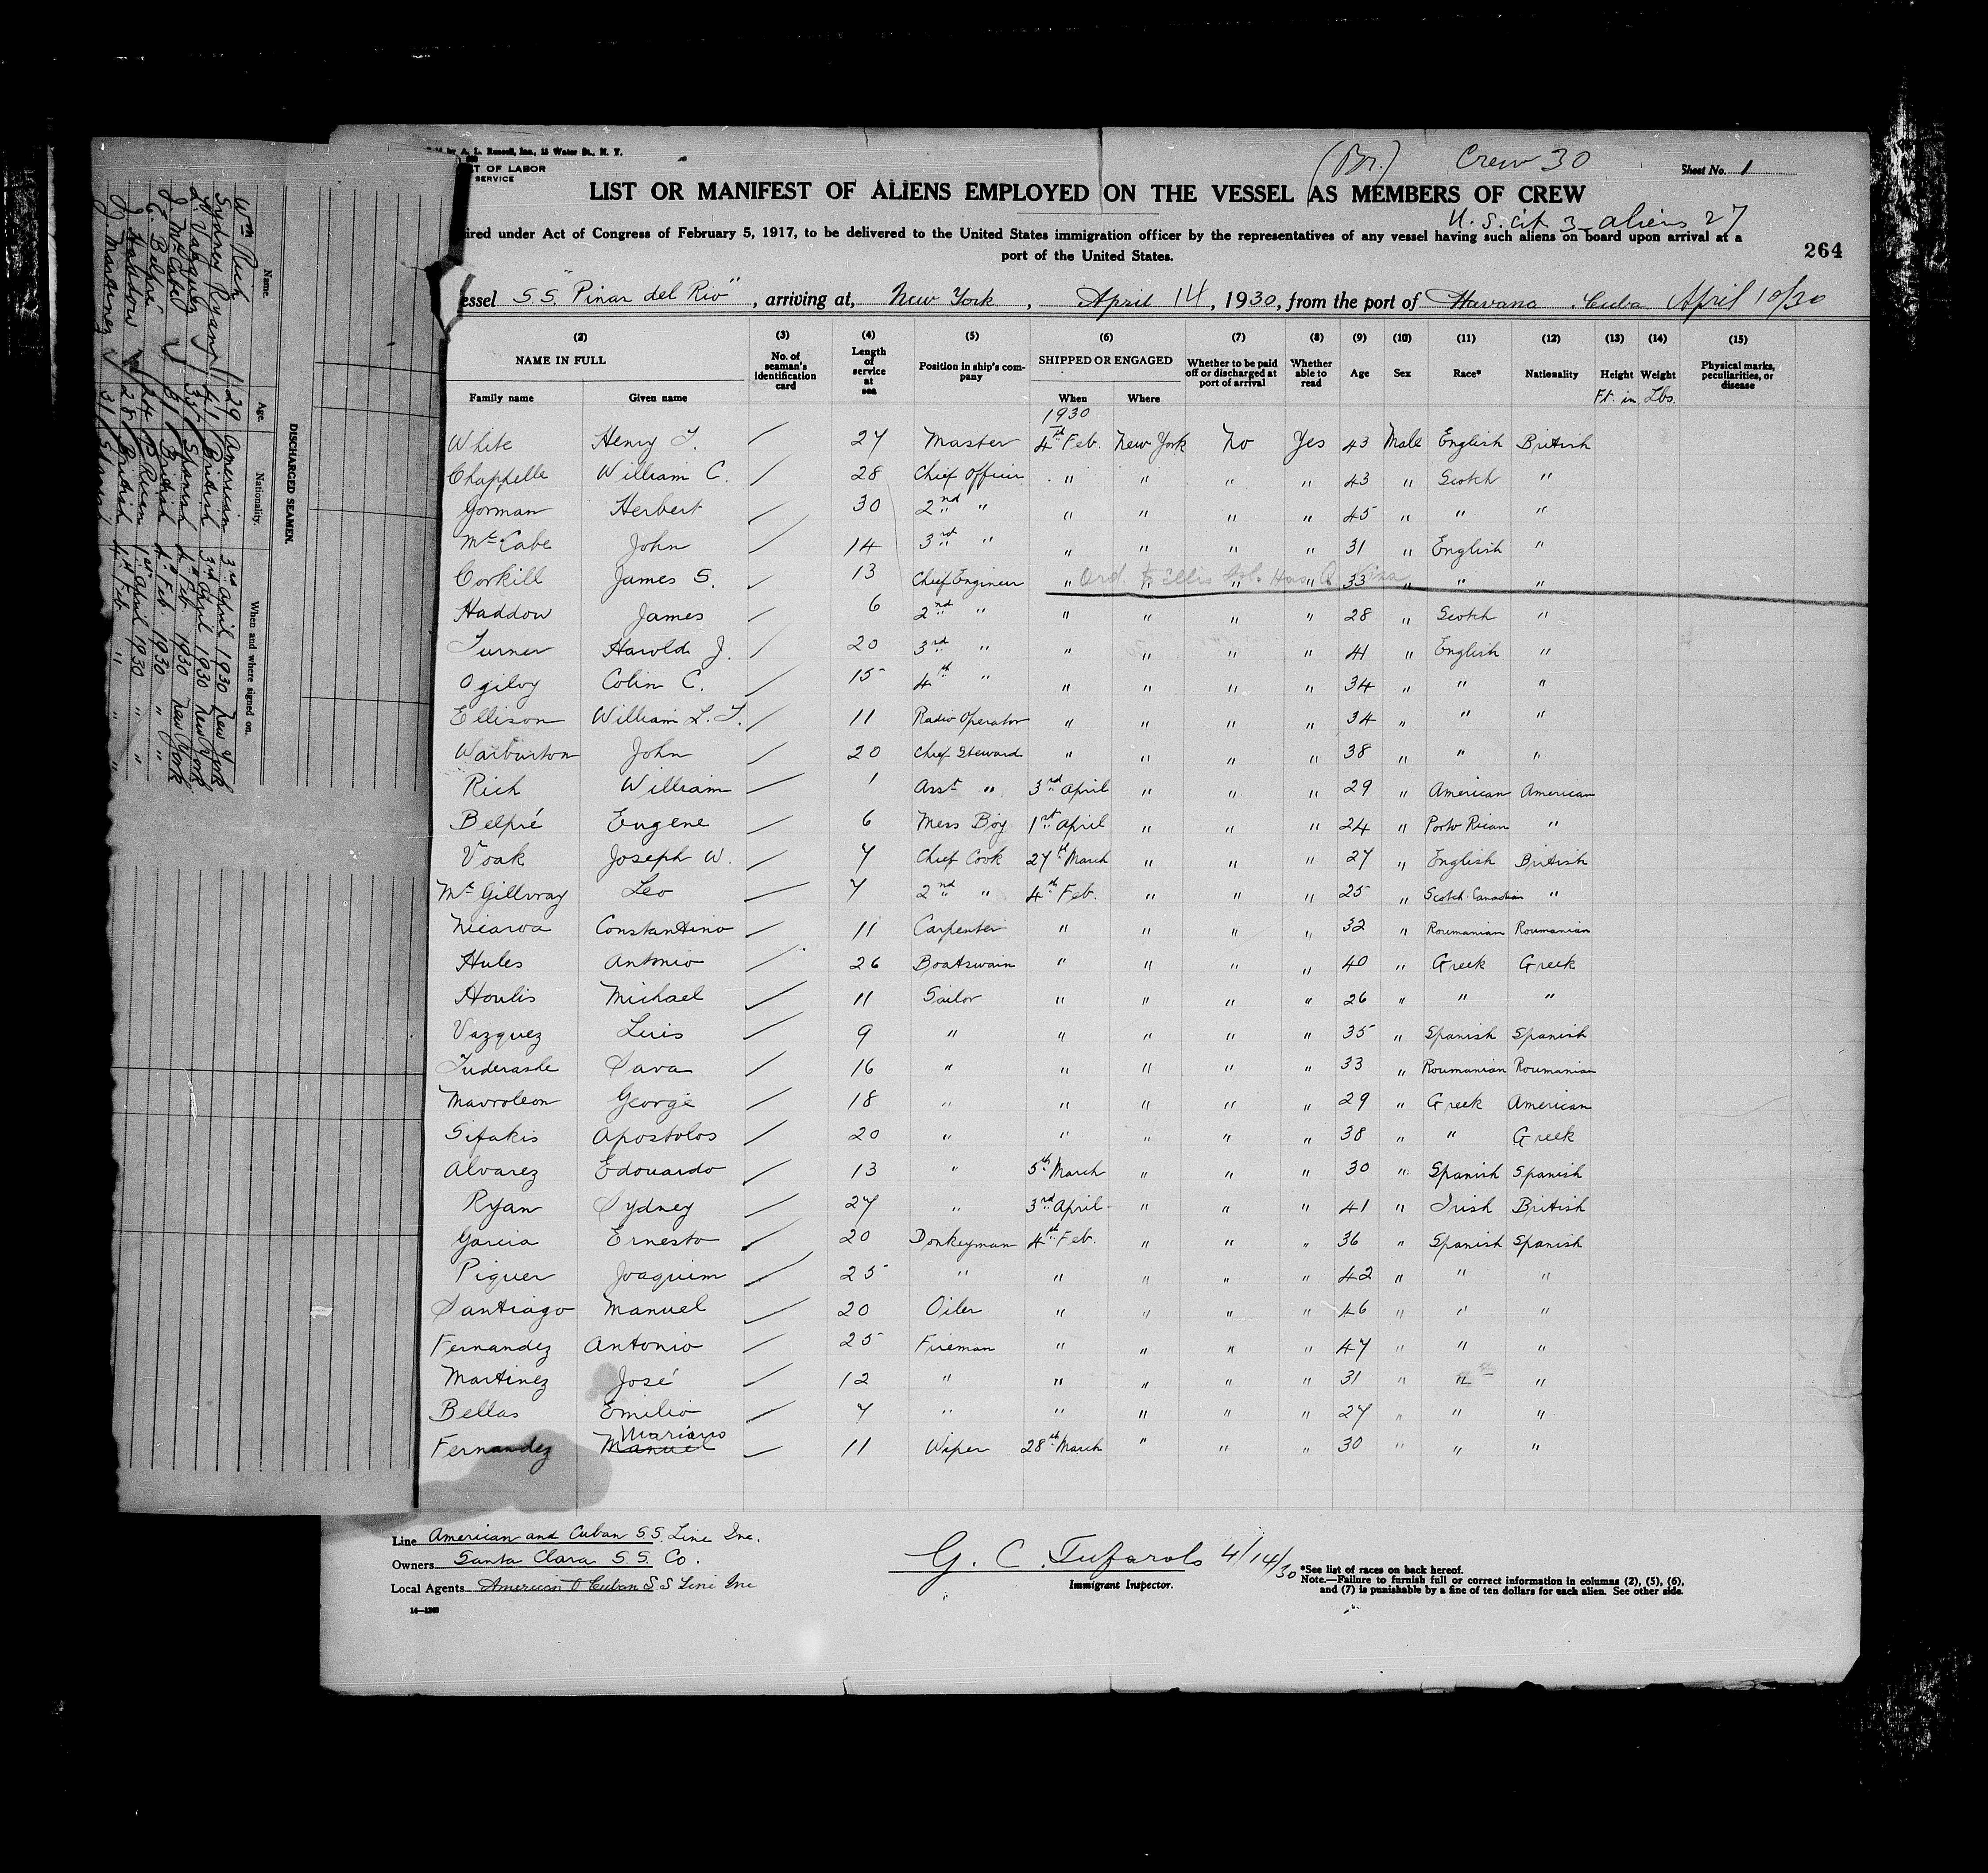 by A. L. Russell, Inc., 15 Water St., N. Y.
T OF LABOR
SERVICE
(Br.) Crew 30
Sheet No. 1
LIST OR MANIFEST OF ALIENS EMPLOYED ON THE VESSEL AS MEMBERS OF CREW
U. S. cit 3 aliens 27
ired under Act of Congress of February 5, 1917, to be delivered to the United States immigration officer by the representatives of any vessel having such aliens on board upon arrival at a
port of the United States.
264
essel S.S. "Pinar del Rio", arriving at, New York, April 14, 1930, from the port of Havana Cuba April 10/30
(2) (3) (4) (5) (6) (7) (8) (9) (10) (11) (12) (13) (14) (15)
NAME IN FULL No. of seaman's identification card Length of service at sea Position in ship's company SHIPPED OR ENGAGED Whether to be paid off or discharged at port of arrival Whether able to read Age Sex Race* Nationality Height Weight Physical marks, peculiarities, or disease
Family name Given name When Where Ft. in. Lbs.
1930
White Henry T. / 27 Master 4th Feb. New York No Yes 43 Male English British
Chappelle William C. / 28 Chief Officer " " " " 43 " Scotch "
Gorman Herbert / 30 2nd " " " " " 45 " " "
McCabe John / 14 3rd " " " " " 31 " English "
Corkill James S. / 13 Chief Engineer " " " " 33 " " "
Ord. to Ellis Isl.
Haddow James / 6 2nd " " " " " 28 " Scotch "
Turner Harold J. / 20 3rd " " " " " 41 " English "
Ogilvy Colin C. / 15 4th " " " " " 34 " " "
Ellison William L. T. / 11 Radio Operator " " " " 34 " " "
Warburton John / 20 Chief Steward " " " " 38 " " "
Rich William / 1 Asst " 3rd April " " " 29 " American American
Belpré Eugene / 6 Mess Boy 1st April " " " 24 " Porto Rican "
Voak Joseph W. / 7 Chief Cook 27th March " " " 27 " English British
McGillvray Leo / 7 2nd " 4th Feb. " " " 25 " Scotch Canadian "
Nicaroa Constantino / 11 Carpenter " " " " 32 " Roumanian Roumanian
Hules Antonio / 26 Boatswain " " " " 40 " Greek Greek
Houlis Michael / 11 Sailor " " " " 26 " " "
Vazquez Luis / 9 " " " " " 35 " Spanish Spanish
Tuderashe Sava / 16 " " " " " 33 " Roumanian Roumanian
Mavroleon George / 18 " " " " " 29 " Greek American
Sifakis Apostolos / 20 " " " " " 38 " " Greek
Alvarez Edouardo / 13 " 5th March " " " 30 " Spanish Spanish
Ryan Sydney / 27 " 3rd April " " " 41 " Irish British
Garcia Ernesto / 20 Donkeyman 4th Feb. " " " 36 " Spanish Spanish
Piquer Joaquim / 25 " " " " " 42 " " "
Santiago Manuel / 20 Oiler " " " " 46 " " "
Fernandez Antonio / 25 Fireman " " " " 47 " " "
Martinez José / 12 " " " " " 31 " " "
Bellas Emilio / 7 " " " " " 27 " " "
Mariano
Fernandez Manuel / 11 Wiper 28th March " " " 30 " " "
Line American and Cuban S.S. Line Inc.
Owners Santa Clara S.S. Co.
Local Agents American & Cuban S.S Line Inc
14—1240
G. C. Tufarolo 4/14/30
Immigrant Inspector.
*See list of races on back hereof.
Note.—Failure to furnish full or correct information in columns (2), (5), (6),
and (7) is punishable by a fine of ten dollars for each alien. See other side.
DISCHARGED SEAMEN.
Name. Age. Nationality. When and where signed on.
Wm Rich / 29 American 3rd April 1930 New York
Sydney Ryan / 41 British 3rd April 1930 New York
L. Vazquez / 35 Spanish 4th Feb. 1930 New York
J. McCabe / 31 British 4th Feb. 1930 " "
E. Belpré 24 P. Rican 1st April 1930 " "
J. Haddow 28 British 4th Feb. " "
J. Martinez 31 Spanish